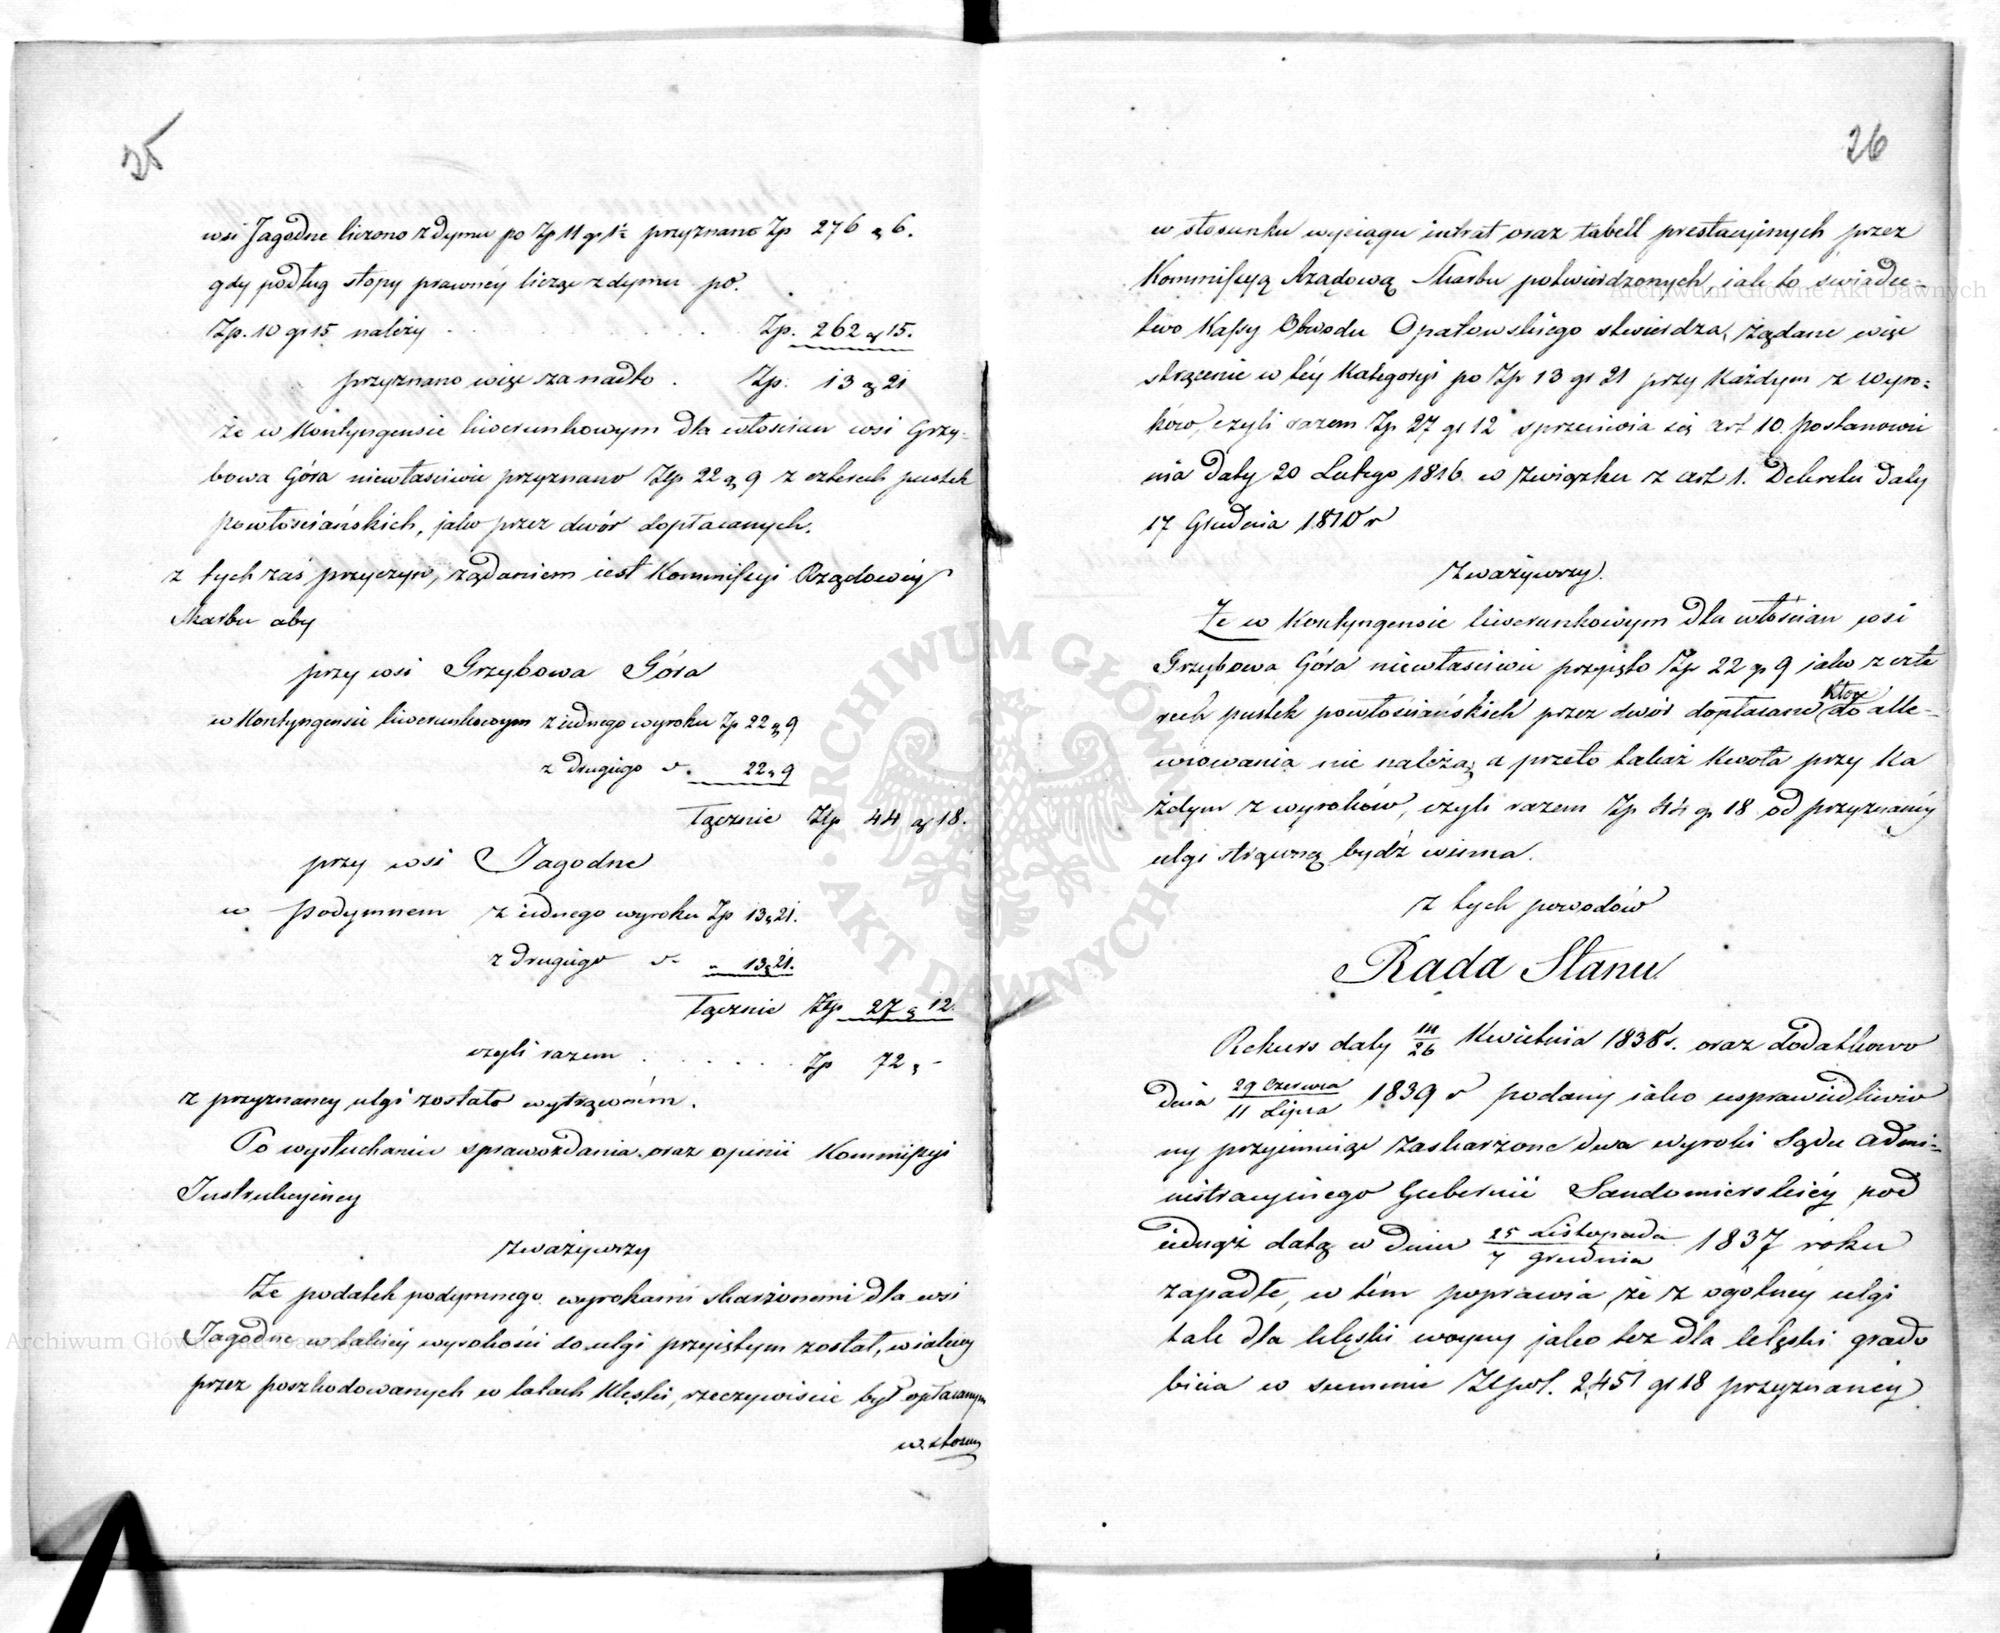 25
wsi Jagodne liczono z dymu po Zp 11 gr 1½ przyznano Zp 276 g 6.
gdy podług stopy prawnéy licząc z dymu po.
Zp. 10 gr 15 należy . . . . Zp. 262 g 15.
przyznano więc za nadto . Zp. 13 g 21
że w Kontyngensie liwerunkowym dla włościan wsi Grzy-
bowa Góra niewłaściwie przyznano Złp 22 g 9 z czterech pustek
powłościańskich, jako przez dwór dopłacanych.
z tych zaś przyczyn, żądaniem iest Kommissyi Rządowéy
Skarbu aby
przy wsi Grzybowa Góra
w Kontyngensie liwerunkowym z iednego wyroku Zp 22 g 9
z drugiego v. 22 g 9
Łącznie Złp 44 g 18.
przy wsi Jagodne
w podymnem z iednego wyroku Zp 13 g 21.
z drugiego v. „ 13 g 21.
Łącznie Złp 27 g 12.
czyli razem . . . . . Zp 72 g -
z przyznaney ulgi zostało wytrąconém.
Po wysłuchaniu sprawozdania oraz opinii Kommissyi
Instrukcyiney
zważywszy
Że podatek podymnego wyrokami skarżonemi dla wsi
Jagodne w takiéy wysokości do ulgi przyiętym został, w iakiey
przez poszkodowanych w latach klęski, rzeczywiście był opłacanym
w stosun
26
w stosunku wyciągu intrat oraz tabell prestacyinych przez
Kommissyą Rządową Skarbu potwierdzonych, iak to świadec-
two Kassy Obwodu Opatowskiego stwierdza, żądane więc
strącenie w téy Kategoryi po Zp 13 gr 21 przy każdym z wyro-
ków, czyli razem Zp 27 gr 12 sprzeciwia się art 10. postanowie
nia daty 20 Lutego 1816 w związku z art 1. Dekretu daty
17 Grudnia 1810 r
zważywszy.
Że w Kontyngensie liwerunkowym dla włościan wsi
Grzybowa Góra niewłaściwie przyięto Zp 22 gr 9 jako z czte
rech pustek powłościańskich przez dwór dopłacane
które
do alle-
wiowania nie należą, a przeto takaż kwota przy ka
żdym z wyroków, czyli razem Zp 44 gr 18 od przyznanéy
ulgi strąconą bydź winna.
z tych powodów
Rada Stanu
Rekurs daty 14/26 Kwietnia 1838 r. oraz dodatkowo
dnia 29 Czerwca/11 Lipca 1839 r podany iako usprawiedliwio
ny przyimuiąc zaskarżone dwa wyroki Sądu Admi-
nistracyinego Gubernii Sandomierskiéy pod
iednąż datą w dniu 25 Listopada/7 Grudnia 1837 roku
zapadłe, w tém poprawia, że z ogólnéy ulgi
tak dla klęski woyny jako też dla klęski grado
bicia w summie Złpol. 2,451 gr 18 przyznanéy
ARCHIWUM GŁÓWNE AKT DAWNYCH
Archiwum Główne Akt Dawnych
Archiwum Główne Akt Dawnych